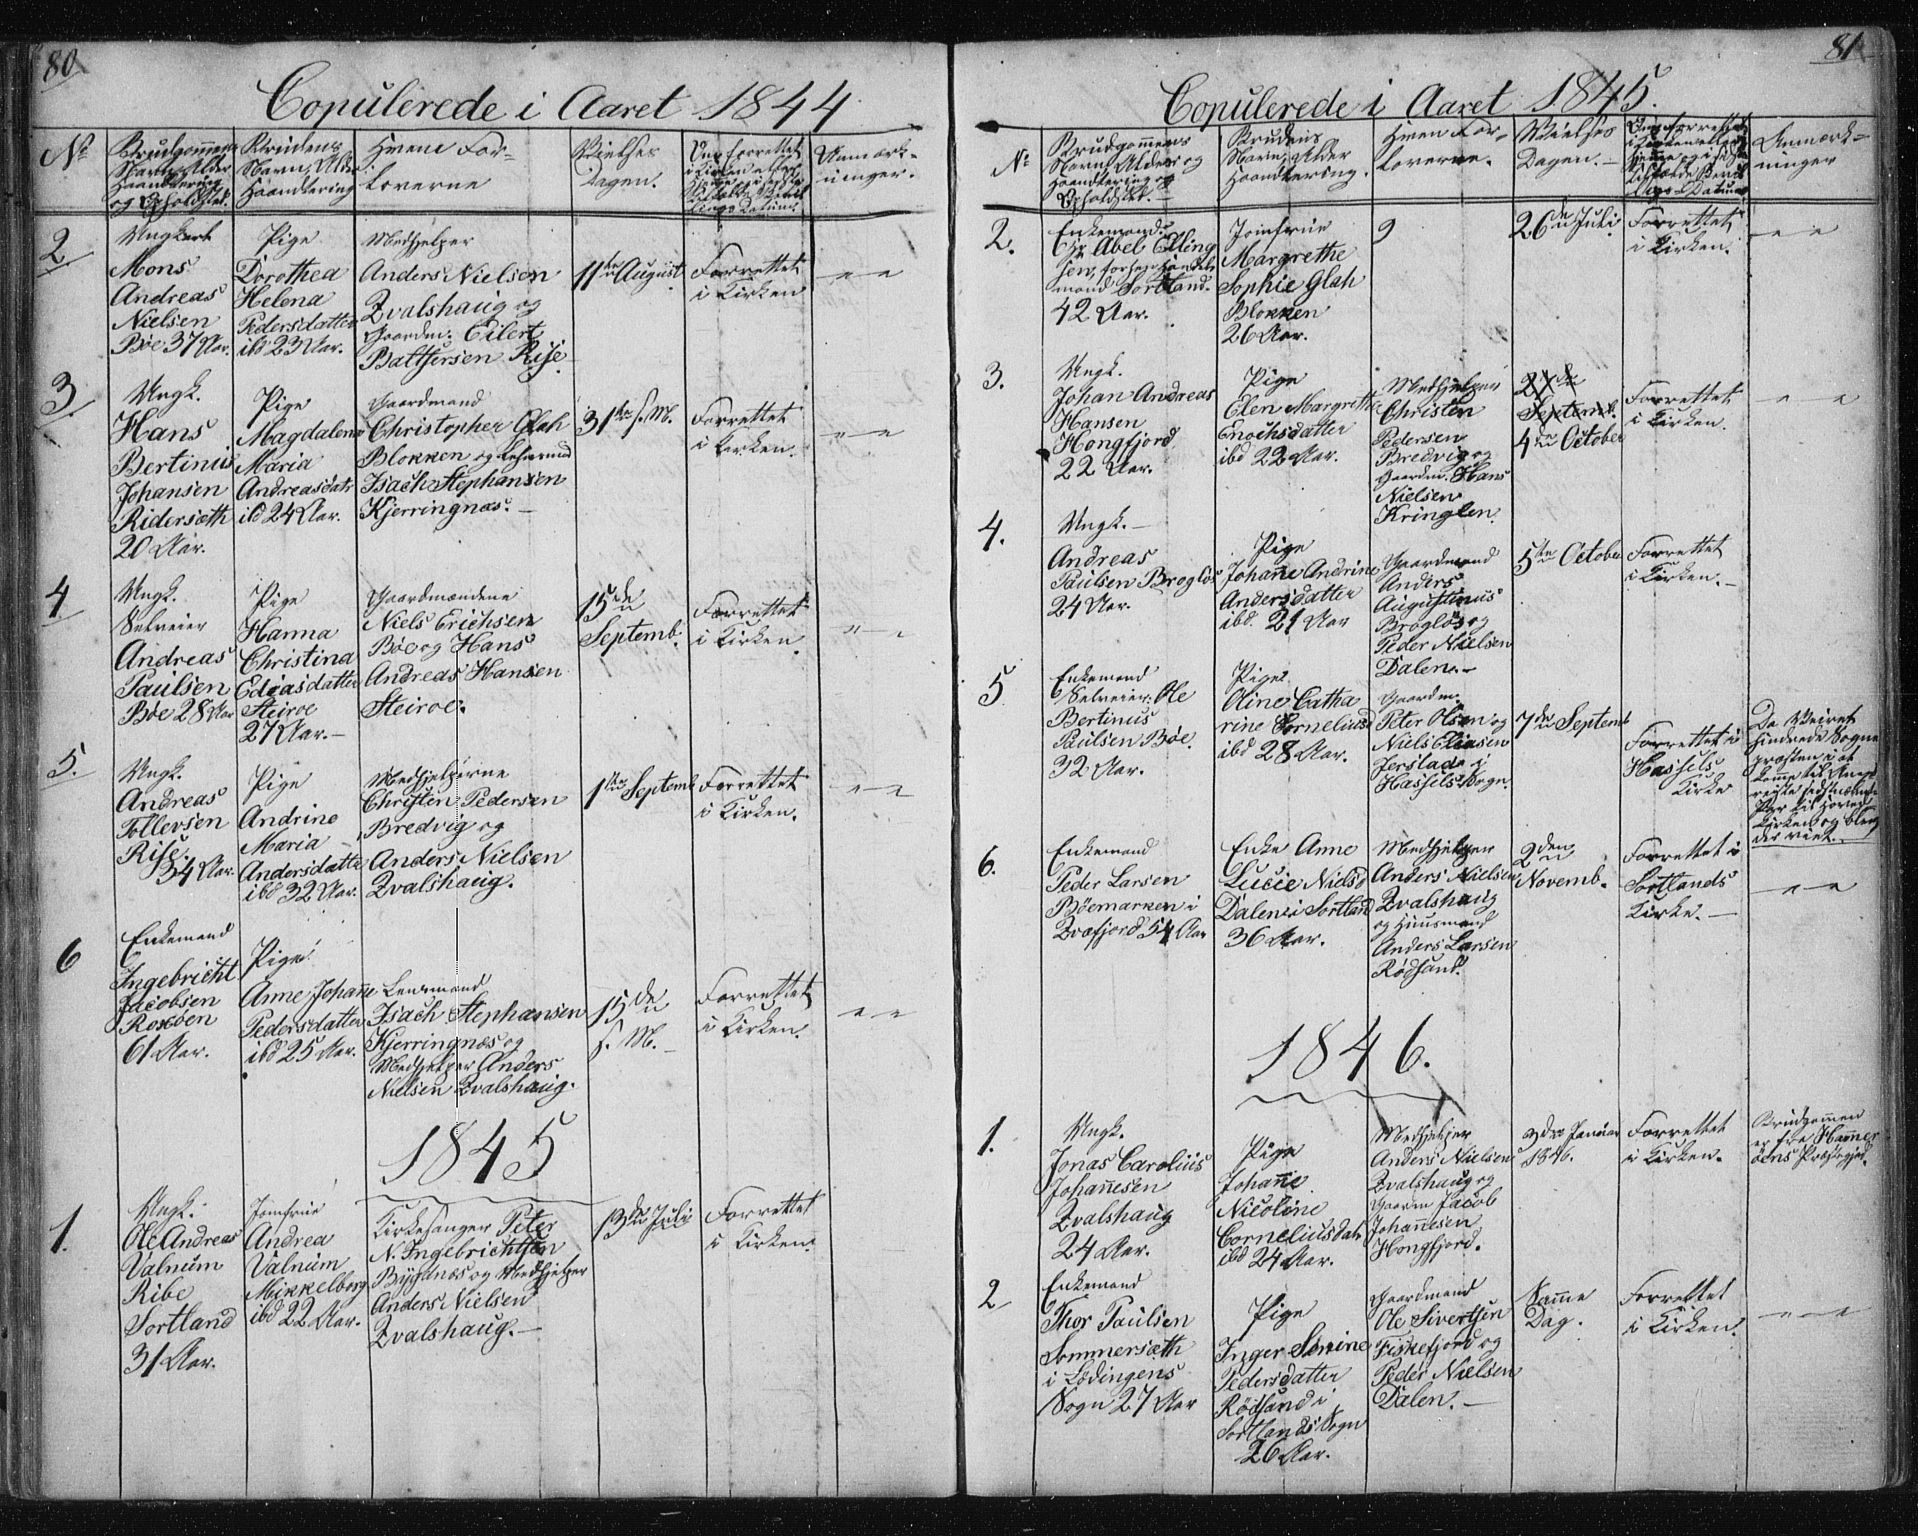 80
Copulerede i Aaret 1844
No
Brudgommens
Navn, Alder
Haandtering
og Opholdsted.
Brudens
Navn, Alder
Haandtering
Hvem For-
loverne
Vielses
Dagen.
Om forrettet
i Kirken eller
Anmærk-
ninger.
2
Ungkarl
Mons
Andreas
Nielsen
Bøe 37 Aar.
Pige
Dorothea
Helena
Pedersdatter
ibd 23 Aar.
Medhjelper
Anders Nielsen
Kvalshaug og
Gaardm. Eilert
Balthersen Rise
11te August
Forrettet
i Kirken
" — "
3.
Ungk.
Hans
Bertinius
Johansen
Ridersæth
20 Aar.
Pige
Magdalena
Maria
Andreasdatr
ibd 24 Aar.
Gaardmand
Christopher Glah
Blokken og Lehnsmd
Isach Stephansen
Kjerringnæs. —
31te s. M.
Forrettet
i Kirken.
" — "
4
Ungk.
Selveier
Andreas
Paulsen
Bøe 28 Aar
Pige
Hanna
Christina
Ediasdatter
Steiroe
27 Aar. —
Gaardmændene
Niels Erichsen
Bøe og Hans
Andreas Hansen
Steiroe.
15de
Septemb.
Forrettet
i Kirken.
" — "
5.
Ungk.
Andreas
Tollevsen
Rise
34 Aar.
Pige
Andrine
Maria
Andersdatter
ibd 32 Aar.
Medhjelperne
Christen Pedersen
Bredvig og
Anders Nielsen
Kvalshaug.
1ste Septemb
Forrettet
i Kirken.
" — "
6
Enkemand
Ingebricht
Jacobsen
Roksøen
61 Aar.
Pige
Anne Johanne
Pedersdatter
ibd 25 Aar.
Lensmand
Isach Stephansen
Kjerringnæs og
Medhjelper Anders
Nielsen Kvalshaug.
15de
s. M.
Forrettet
i Kirken.
" — "
1845
1.
Ungk.
Ole Andreas
Valnum
Ribe
Sortland
31 Aar.
Jomfrue
Andrea
Valnum
Mikkelborg
ibd 22 Aar.
Kirkesanger Peter
N. Ingebrichtsen
Bygdnæs og Medhjelper
Anders Nielsen
Kvalshaug. —
13de Juli
Forrettet
i Kirken.
81
Copulerede i Aaret 1845.
No
Brudgommens
Navn, Alder og
Haandtering og
Opholdsted. —
Brudens
Navn, Alder
Haandtering.
Hvem For-
loverne.
Vielses
Dagen. —
Om forrettet
Anmærk-
ninger
2.
Enkemand
Abel Elling
sen, forhen Handels
mand Sortland.
42 Aar.
Jomfrue
Margrethe
Sophie Glah
Blokken
26 Aar.
?
26de Juli
Forrettet
i Kirken.
" — "
3.
Ungk.
Johan Andreas
Hansen
Hongfjord
22 Aar.
Pige
Elen Margrethe
Enochsdatter
ibd 22 Aar.
Medhjelper
Christen
Pedersen
Bredvig og
Gaardm. Hans
Nielsen
Kringlen.
Septemb.
4de October
Forrettet
i Kirken.
" — "
4.
Ungk. —
Andreas
Paulsen Brogløs
24 Aar.
Pige
Johanne Andrine
Andersdatter
ibd. 21 Aar
Gaardmand
Anders
Augustinus
Brogløs og
Peder Nielsen
Dalen. —
5te October
Forrettet
i Kirken. —
5
Enkemand
Selveier Ole
Bertinus
Paulsen Bøe.
32 Aar.
Pige
Oline Catha
rine Cornelius
ibd 28 Aar.
Gaardm.
Peter Olsen og
Niels Eliasen
Jerstad i
Hassels Sogn.
7de Septemb
Forrettet i
Hassels
Kirke
Da Veiret
hindrede Sogne
præsten i at
komme til
Par til Hoved
Kirken og blev
der viet.
6.
Enkemand
Peder Larsen
Bøemarken i
Kvæfjord 54 Aar
Enke Anne
Lucie Nielsd
Dalen i Sortland
36 Aar.
Medhjelper
Anders Nielsen
Kvalshaug
og Huusmand
Anders Larsen
Rødsand.
2den
Novemb.
Forrettet i
Sortlands
Kirke. —
" — "
1846.
1.
Ungk.
Jonas Carolius
Johannesen
Kvalshaug
24 Aar.
Pige
Johanne
Nicoline
Corneliusdatr
ibd 24 Aar.
Medhjelper
Anders Nielsen
Kvalshaug og
Gaardm Jacob
Johannesen
Hongfjord.
3die Januar
1846.
Forrettet
i Kirken.
Brudgommen
er fra Hammer
øens Præstegjed.
2
Enkemand
Thor Paulsen
Sommersæth
i Lødingens
Sogn 27 Aar
Pige
Inger Simine
Pedersdatter
Rødsand i
Sortlands Sogn
26 Aar.
Gaardmand
Ole Sivertsen
Fiskefjord og
Peder Nielsen
Dalen. —
Samme
Dag.
Forrettet
i Kirken.
" — "